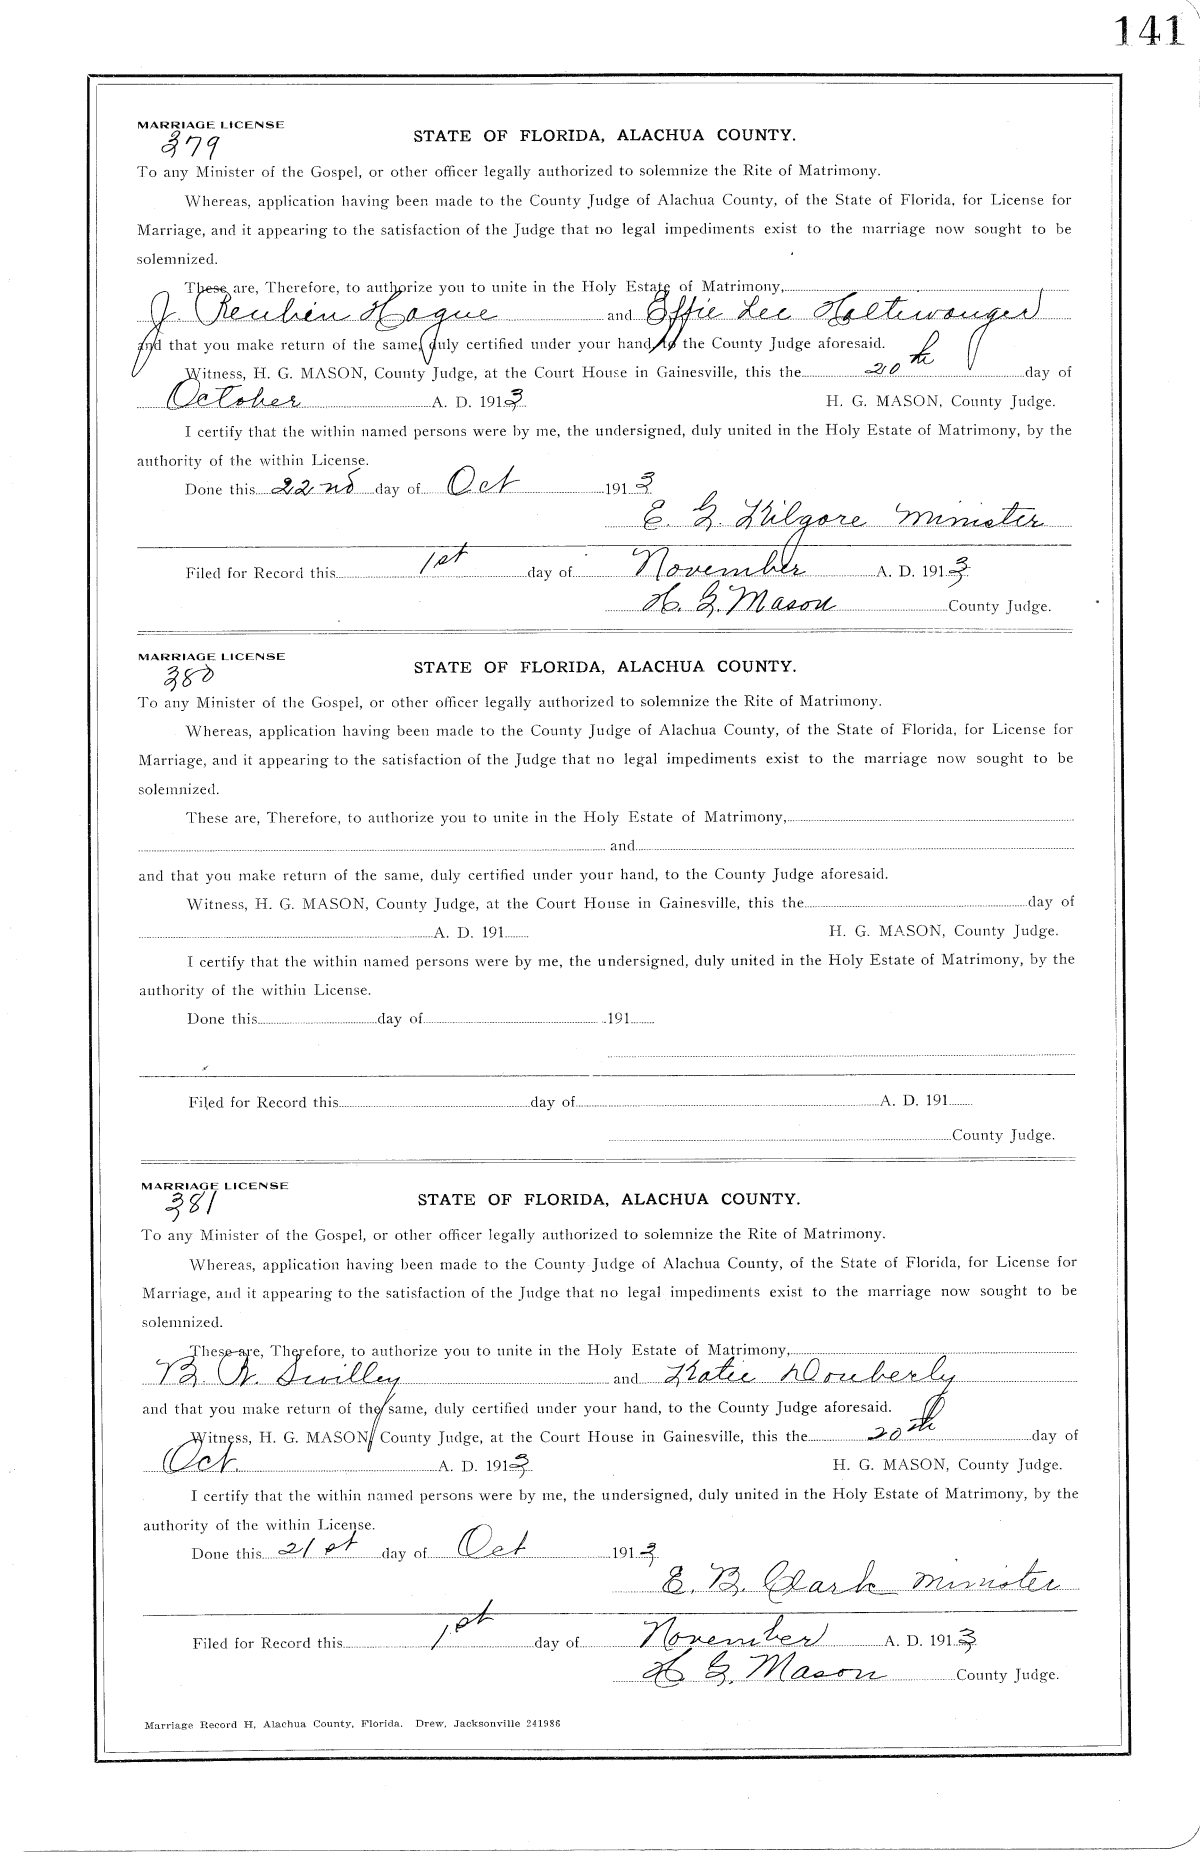 141
MARRIAGE LICENSE
379
STATE OF FLORIDA, ALACHUA COUNTY.
To any Minister of the Gospel, or other officer legally authorized to solemnize the Rite of Matrimony.
Whereas, application having been made to the County Judge of Alachua County, of the State of Florida, for License for
Marriage, and it appearing to the satisfaction of the Judge that no legal impediments exist to the marriage now sought to be
solemnized.
These are, Therefore, to authorize you to unite in the Holy Estate of Matrimony,
J. Reuben Hague and Effie Lee Haltiwanger
and that you make return of the same, duly certified under your hand, to the County Judge aforesaid.
Witness, H. G. MASON, County Judge, at the Court House in Gainesville, this the 20th day of
October A. D. 1913 H. G. MASON, County Judge.
I certify that the within named persons were by me, the undersigned, duly united in the Holy Estate of Matrimony, by the
authority of the within License.
Done this 22nd day of Oct 1913
E. G. Kilgore Minister
Filed for Record this 1st day of November A. D. 1913
H. G. Mason County Judge.
MARRIAGE LICENSE
380
STATE OF FLORIDA, ALACHUA COUNTY.
To any Minister of the Gospel, or other officer legally authorized to solemnize the Rite of Matrimony.
Whereas, application having been made to the County Judge of Alachua County, of the State of Florida, for License for
Marriage, and it appearing to the satisfaction of the Judge that no legal impediments exist to the marriage now sought to be
solemnized.
These are, Therefore, to authorize you to unite in the Holy Estate of Matrimony,
and
and that you make return of the same, duly certified under your hand, to the County Judge aforesaid.
Witness, H. G. MASON, County Judge, at the Court House in Gainesville, this the day of
A. D. 191 H. G. MASON, County Judge.
I certify that the within named persons were by me, the undersigned, duly united in the Holy Estate of Matrimony, by the
authority of the within License.
Done this day of 191
Filed for Record this day of A. D. 191
County Judge.
MARRIAGE LICENSE
381
STATE OF FLORIDA, ALACHUA COUNTY.
To any Minister of the Gospel, or other officer legally authorized to solemnize the Rite of Matrimony.
Whereas, application having been made to the County Judge of Alachua County, of the State of Florida, for License for
Marriage, and it appearing to the satisfaction of the Judge that no legal impediments exist to the marriage now sought to be
solemnized.
These are, Therefore, to authorize you to unite in the Holy Estate of Matrimony,
B. N. Swilley and Katie Douberly
and that you make return of the same, duly certified under your hand, to the County Judge aforesaid.
Witness, H. G. MASON, County Judge, at the Court House in Gainesville, this the 20th day of
Oct. A. D. 1913 H. G. MASON, County Judge.
I certify that the within named persons were by me, the undersigned, duly united in the Holy Estate of Matrimony, by the
authority of the within License.
Done this 21st day of Oct 1913
E. B. Clark Minister
Filed for Record this 1st day of November A. D. 1913
H G. Mason County Judge.
Marriage Record H, Alachua County, Florida. Drew, Jacksonville 241986